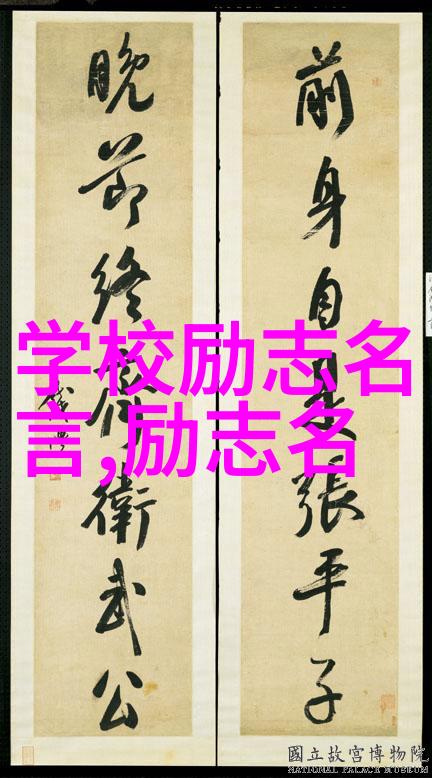 前身自是張平子
晚節終衛武公
学校励志名
言,励志名
國立故宮博物院
NATIONAL PALACE MUSEUM